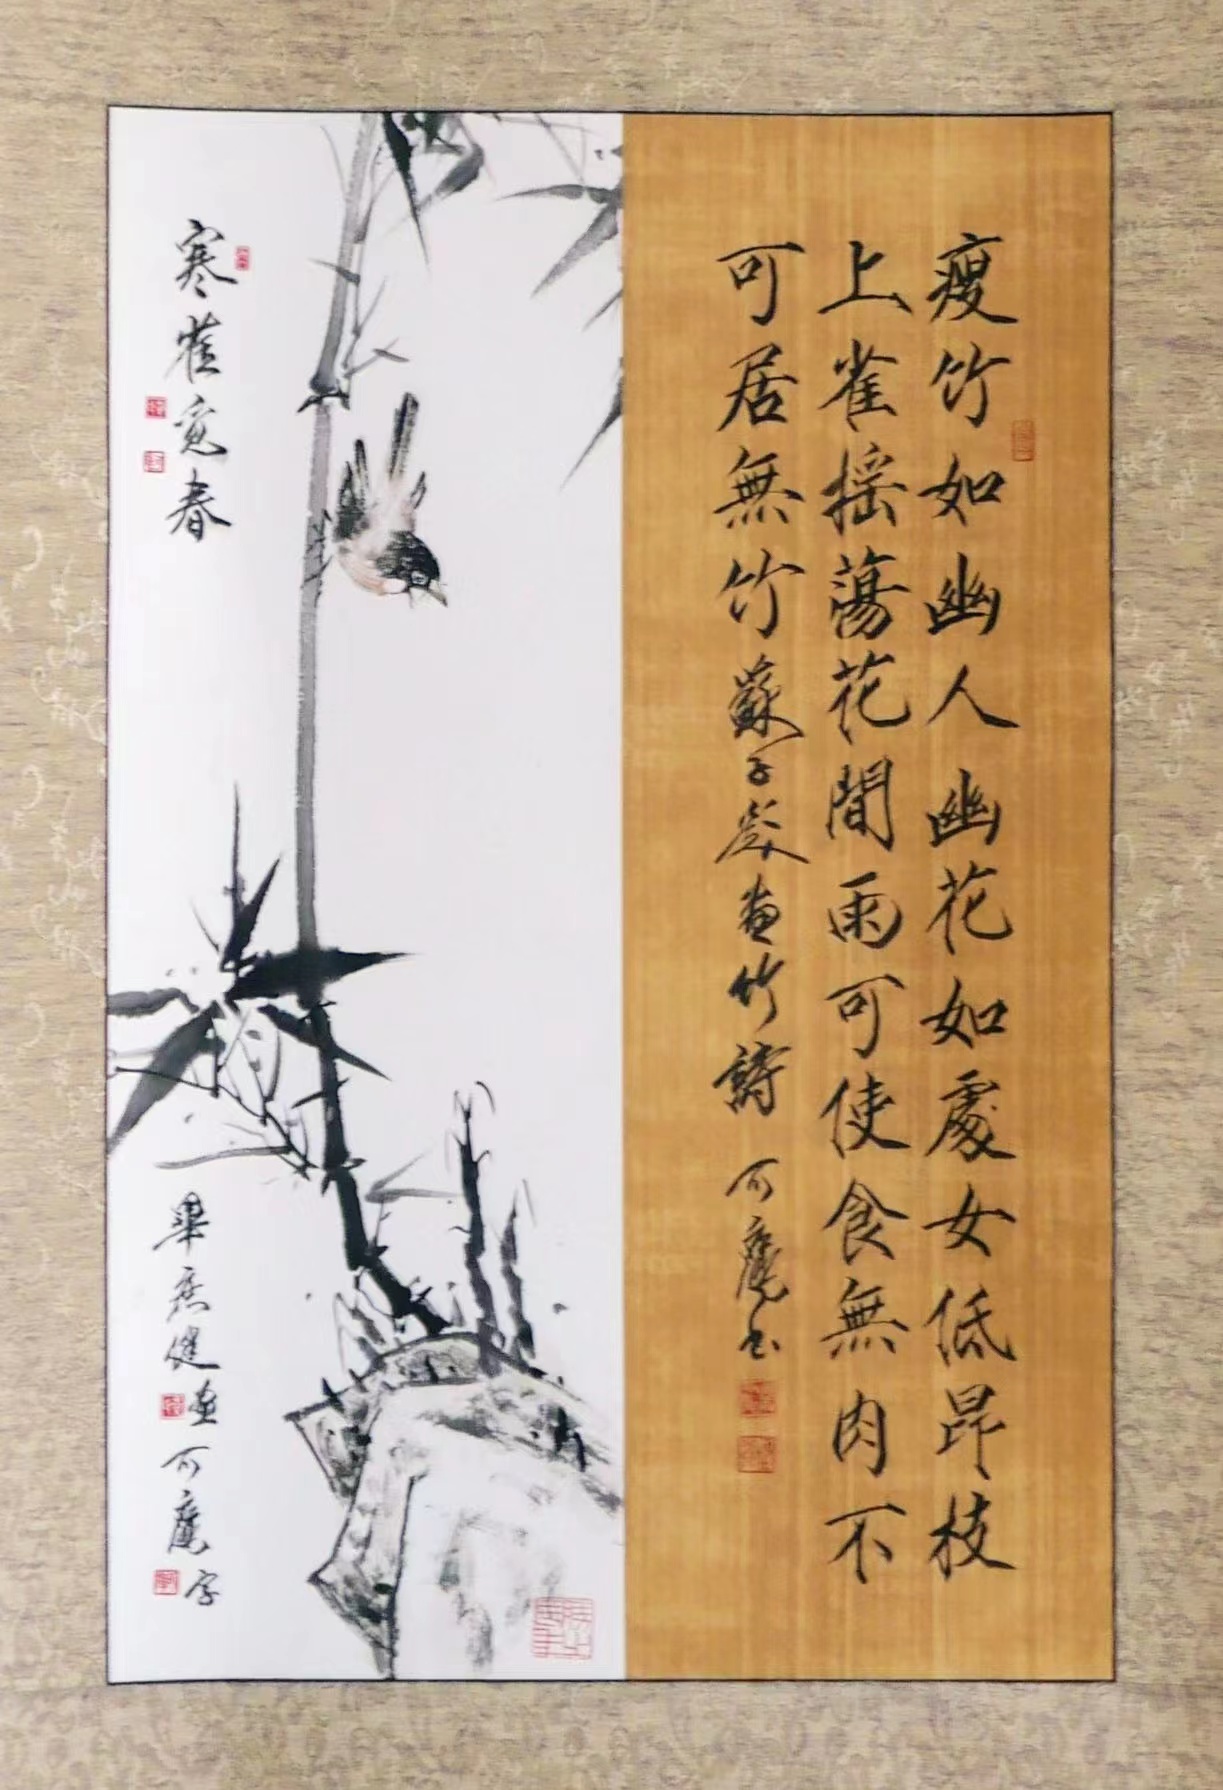 瘦竹如幽人幽花如處女低昂枝
上雀摇蕩花間雨可使食無肉不
可居無竹 蘇子畫竹詩 可書
寒雀覓春
畢健畫 可字